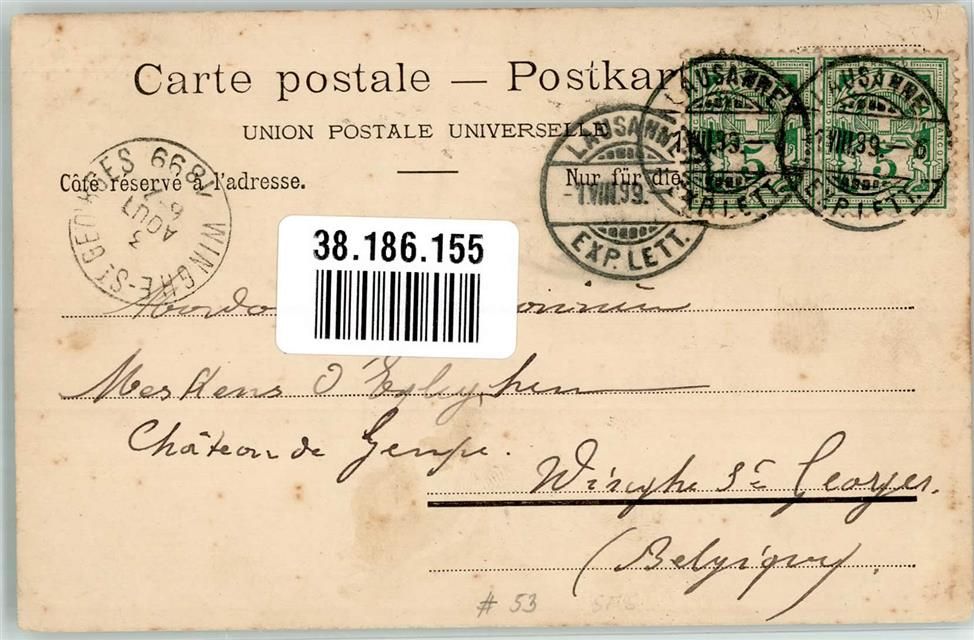 Carte postale — Postkar
UNION POSTALE UNIVERSELLE
Côté réservé à l'adresse. Nur für die
WINGHE-ST GEORGES
3
AOUT
1899
LAUSANNE
-1.VIII.99.
EXP. LETT.
LAUSANNE
1.VIII.99.—6
EXP. LETT.
LAUSANNE
1.VIII.99.—6
EXP. LETT.
5 5
38.186.155
Château de
Winghe St Georges.
(Belgique).
# 53